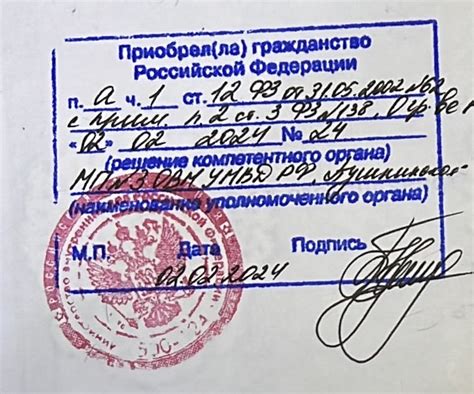 Приобрел(ла) гражданство
Российской Федерации
п. а ч. 1 ст. 12 ФЗ от 31.05.2002 №62
с прим. п 2 ст. 3 ФЗ №138
«02» 02 2024 № 24
(решение компетентного органа)
МП №3 ОВМ УМВД РФ, Пушкинское
(наименование уполномоченного органа)
М.П. Дата Подпись
02.02.2024
500-24